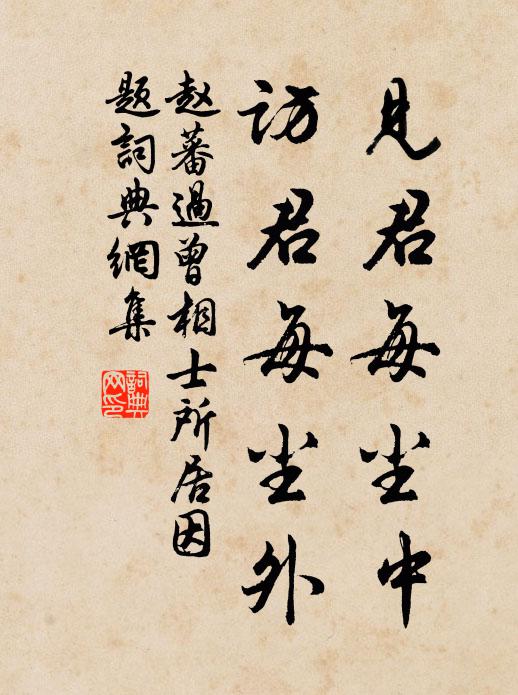 见君每尘中
访君每尘外
赵蕃過曾相士所居因
题詞典網集
詞典网印